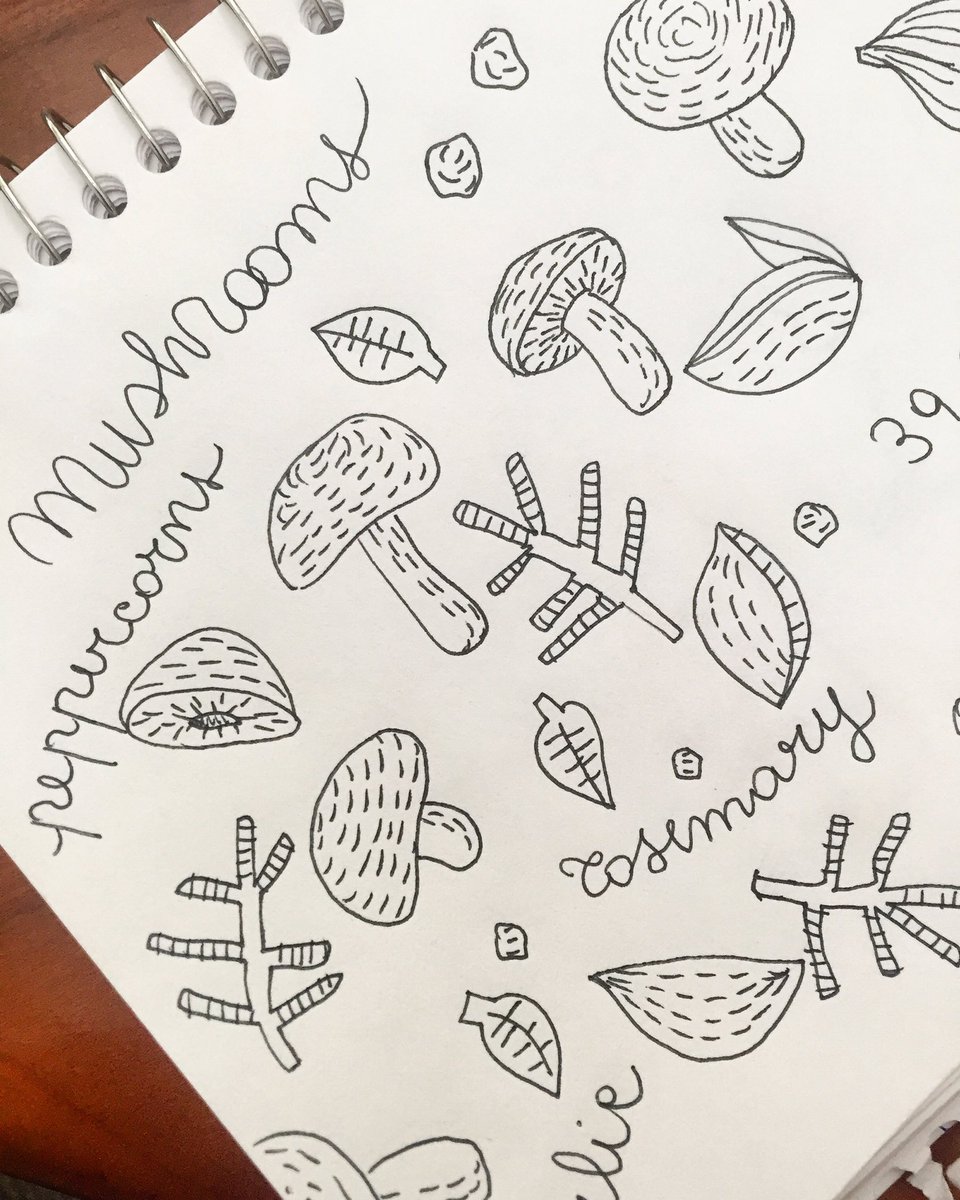 Mushrooms
peppercorns
rosemary